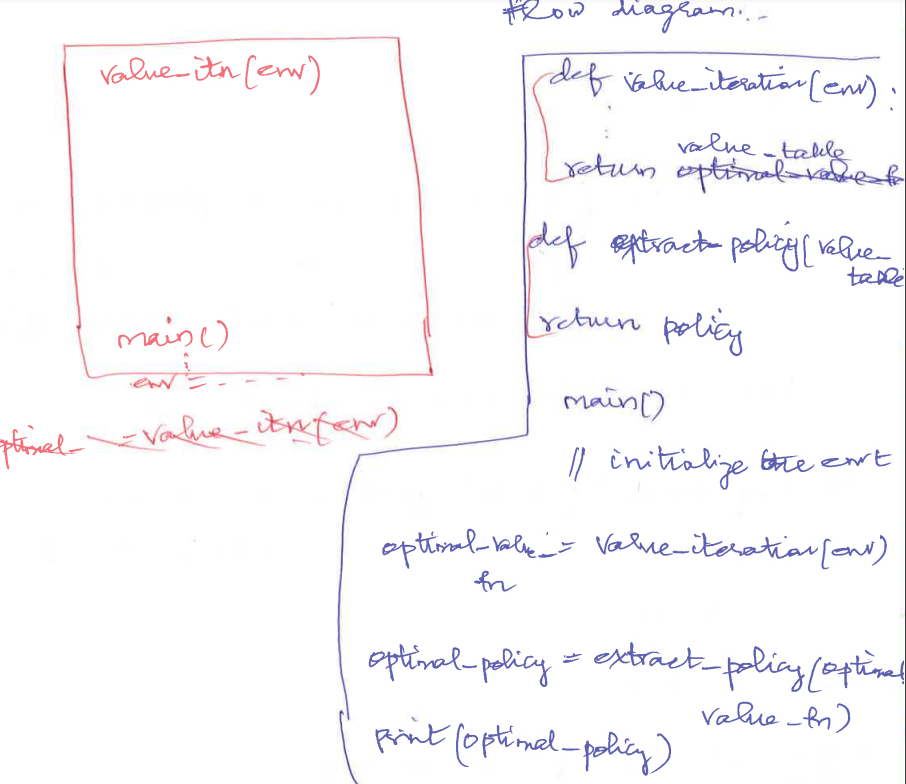 flow diagram...
value_itn(env)
main()
env = - - - -
optimal_ = value_itn(env)
def value_iteration(env) :
value_table
return optimal_value_f
def extract_policy(value_
table
return policy
main()
// initialize the envt
optimal_value_ = value_iteration(env)
fn
optimal_policy = extract_policy(optimal
value_fn)
print(optimal_policy)